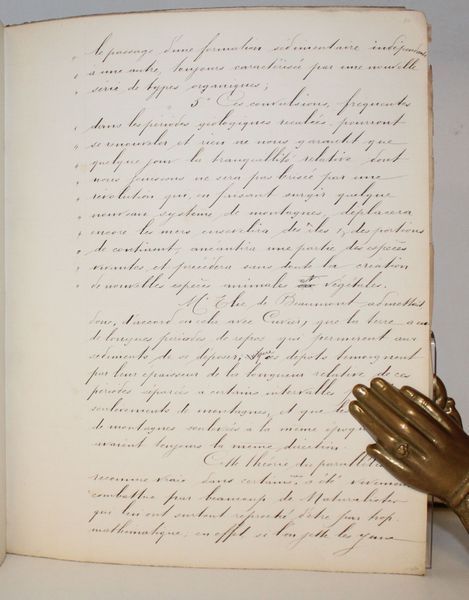 le passage d'une formation sédimentaire indépendante
à une autre, toujours caractérisée par une nouvelle
serie de types organiques;
5° Ces convulsions, frequentes
dans les périodes géologiques reculées pourront
se renouveler et rien ne nous garantit que
quelque jour la tranquillité relative dont
nous jouissons ne sera pas brisée par une
révolution qui, en faisant surgir quelque
nouveau systeme de montagnes, déplacera
encore les mers, ensevelira des îles, des portions
de continent, anéantira une partie des espèces
vivantes et précédera sans doute la création
de nouvelles espèces animales et végétales.
Mr Elie de Beaumont admettait
donc, d'accord en cela avec Cuvier, que la terre a eu
de longues périodes de repos qui permirent aux
sediments de se déposer, que ces depots temoignent
par leur épaisseur de la longueur relative de ces
périodes séparées à certains intervalles
soulevements de montagnes, et que
de montagnes soulevées à la même époque
avaient toujours la même direction.
Cette théorie du
reconnue vraie dans certains a été vivement
combattue par beaucoup de Naturalistes
qui lui ont surtout reproché d'être par trop
mathématique; en effet si l'on jette les yeux